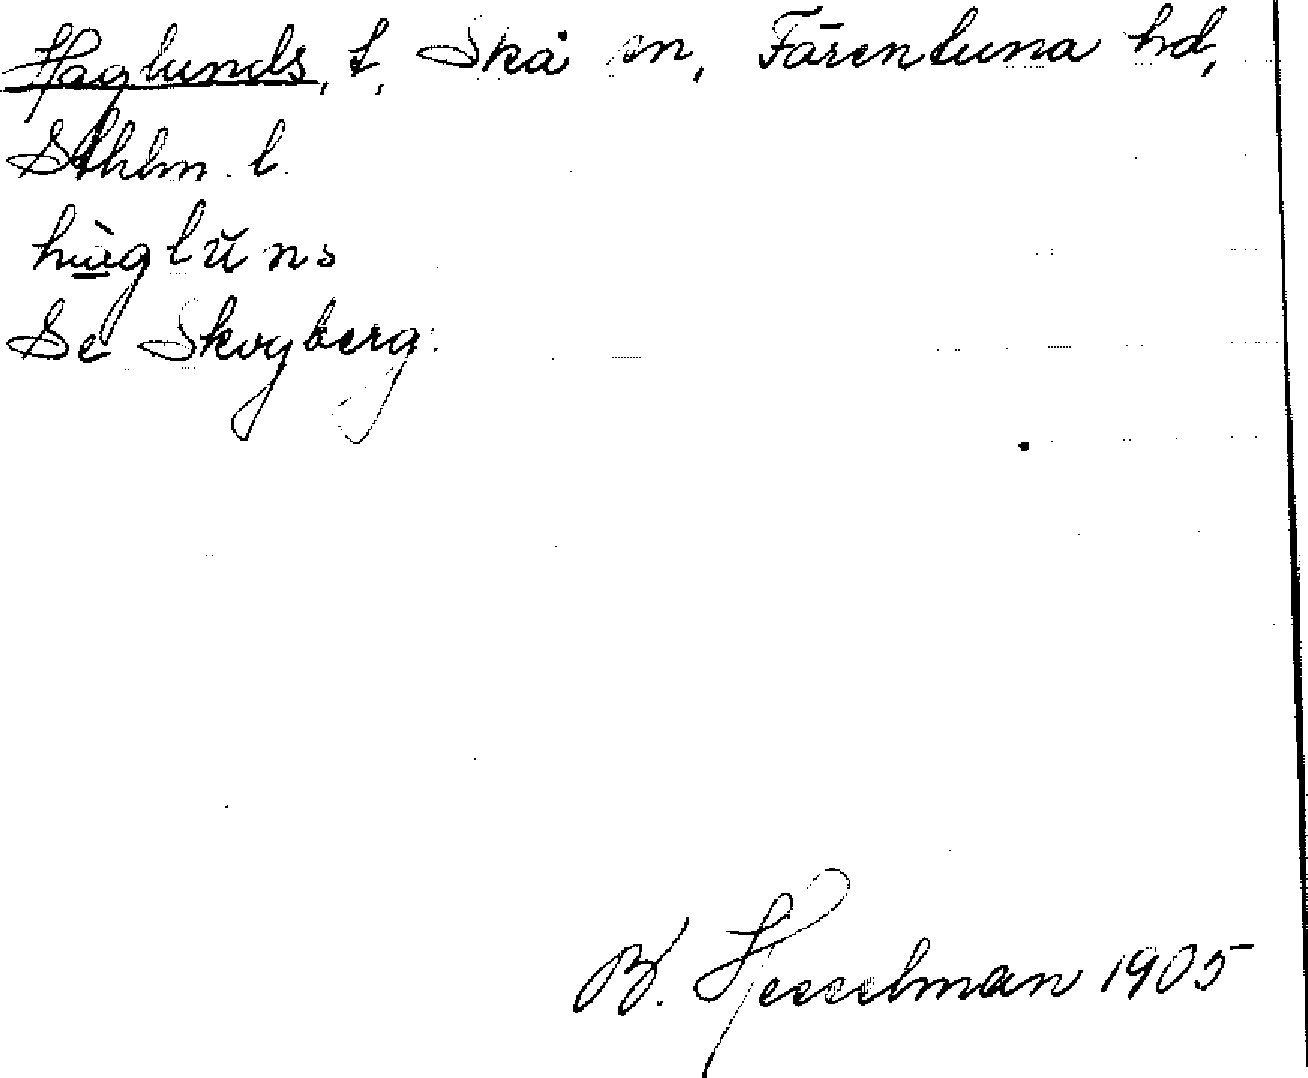 Haglunds, t, Skå sn, Färentuna hd,
Sthlm. l.
hàglŭns
Se Skogberg.
B. Hesselman 1905